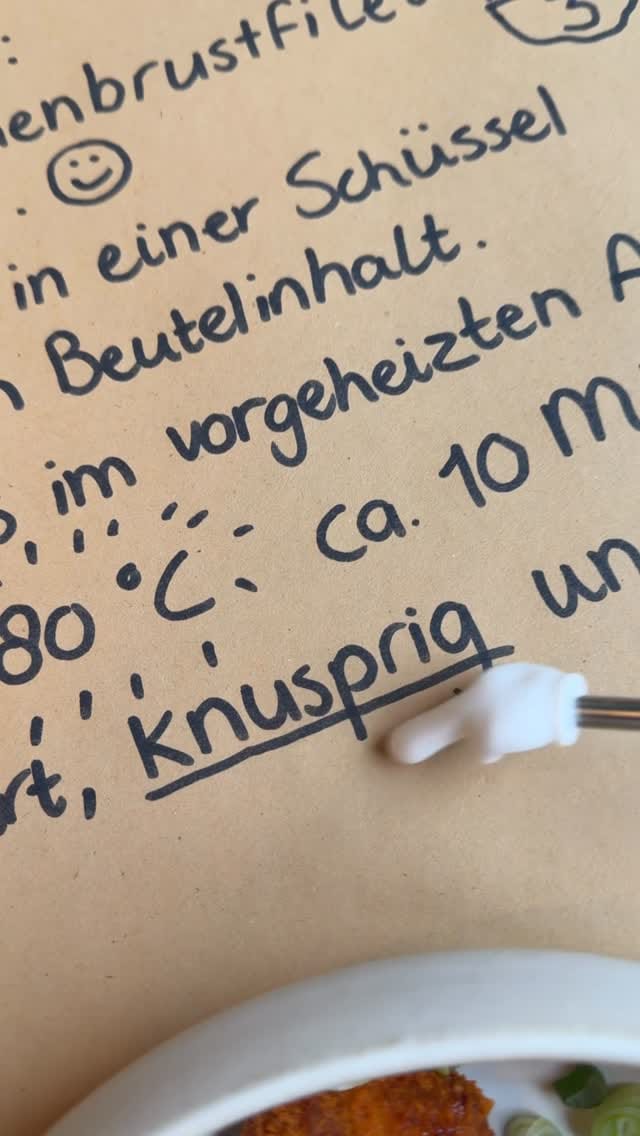 :
enbrustfilet 3
. in einer Schüssel
Beutelinhalt.
, im vorgeheizten A
80 °C ca. 10 M
rt, knusprig un